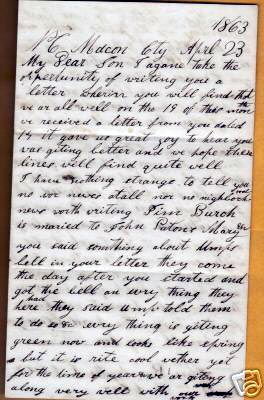 1863
Macon Cty April 23
My Dear Son I agane take the
opertunity of writing you a
letter wherin you will find that
we ar all well on the 19 of this mon
we received a letter from you dated
14 it gave us great joy to hear you
was giting better and we hope these
lines will find quite well
I have nothing strange to tell you
no wor news atall nor no nighborhood
news worth writing Pinn Burch
is maried to John Patons Mary
you said somthing about umps
bell in your letter they come
the day after you started and
got the bell an evry thing they
had
here they said ump told them
to do so evry thing is giting
green now and looks like spring
but it is rite cool wether yet
for the time of year we ar giting
along very well with our